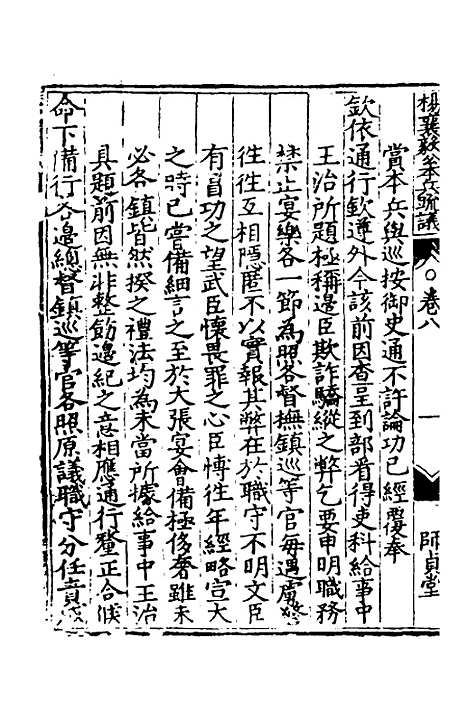 楊襄毅公本兵疏議
卷八
一
師貞堂
當本兵與巡按御史通不許論功已經覆奉
欽依通行欽遵外今該前因查呈到部看得吏科給事中
王治所題極稱邊臣欺詐驕縱之弊乞要申明職務
禁止宴樂各一節為照各督撫鎮巡等官每遇虜警
往往互相隱匿不以實報其弊在於職守不明文臣
有自功之望武臣懷畏罪之心臣博往年經略宣大
之時已嘗備細言之至於大張宴會備極侈奢雖未
必各鎮皆然揆之禮法均為未當所據給事中王治
具題前因無非整飭邊紀之意相應通行釐正合候
命下備行各邊總督鎮巡等官各照原議職守分任責成